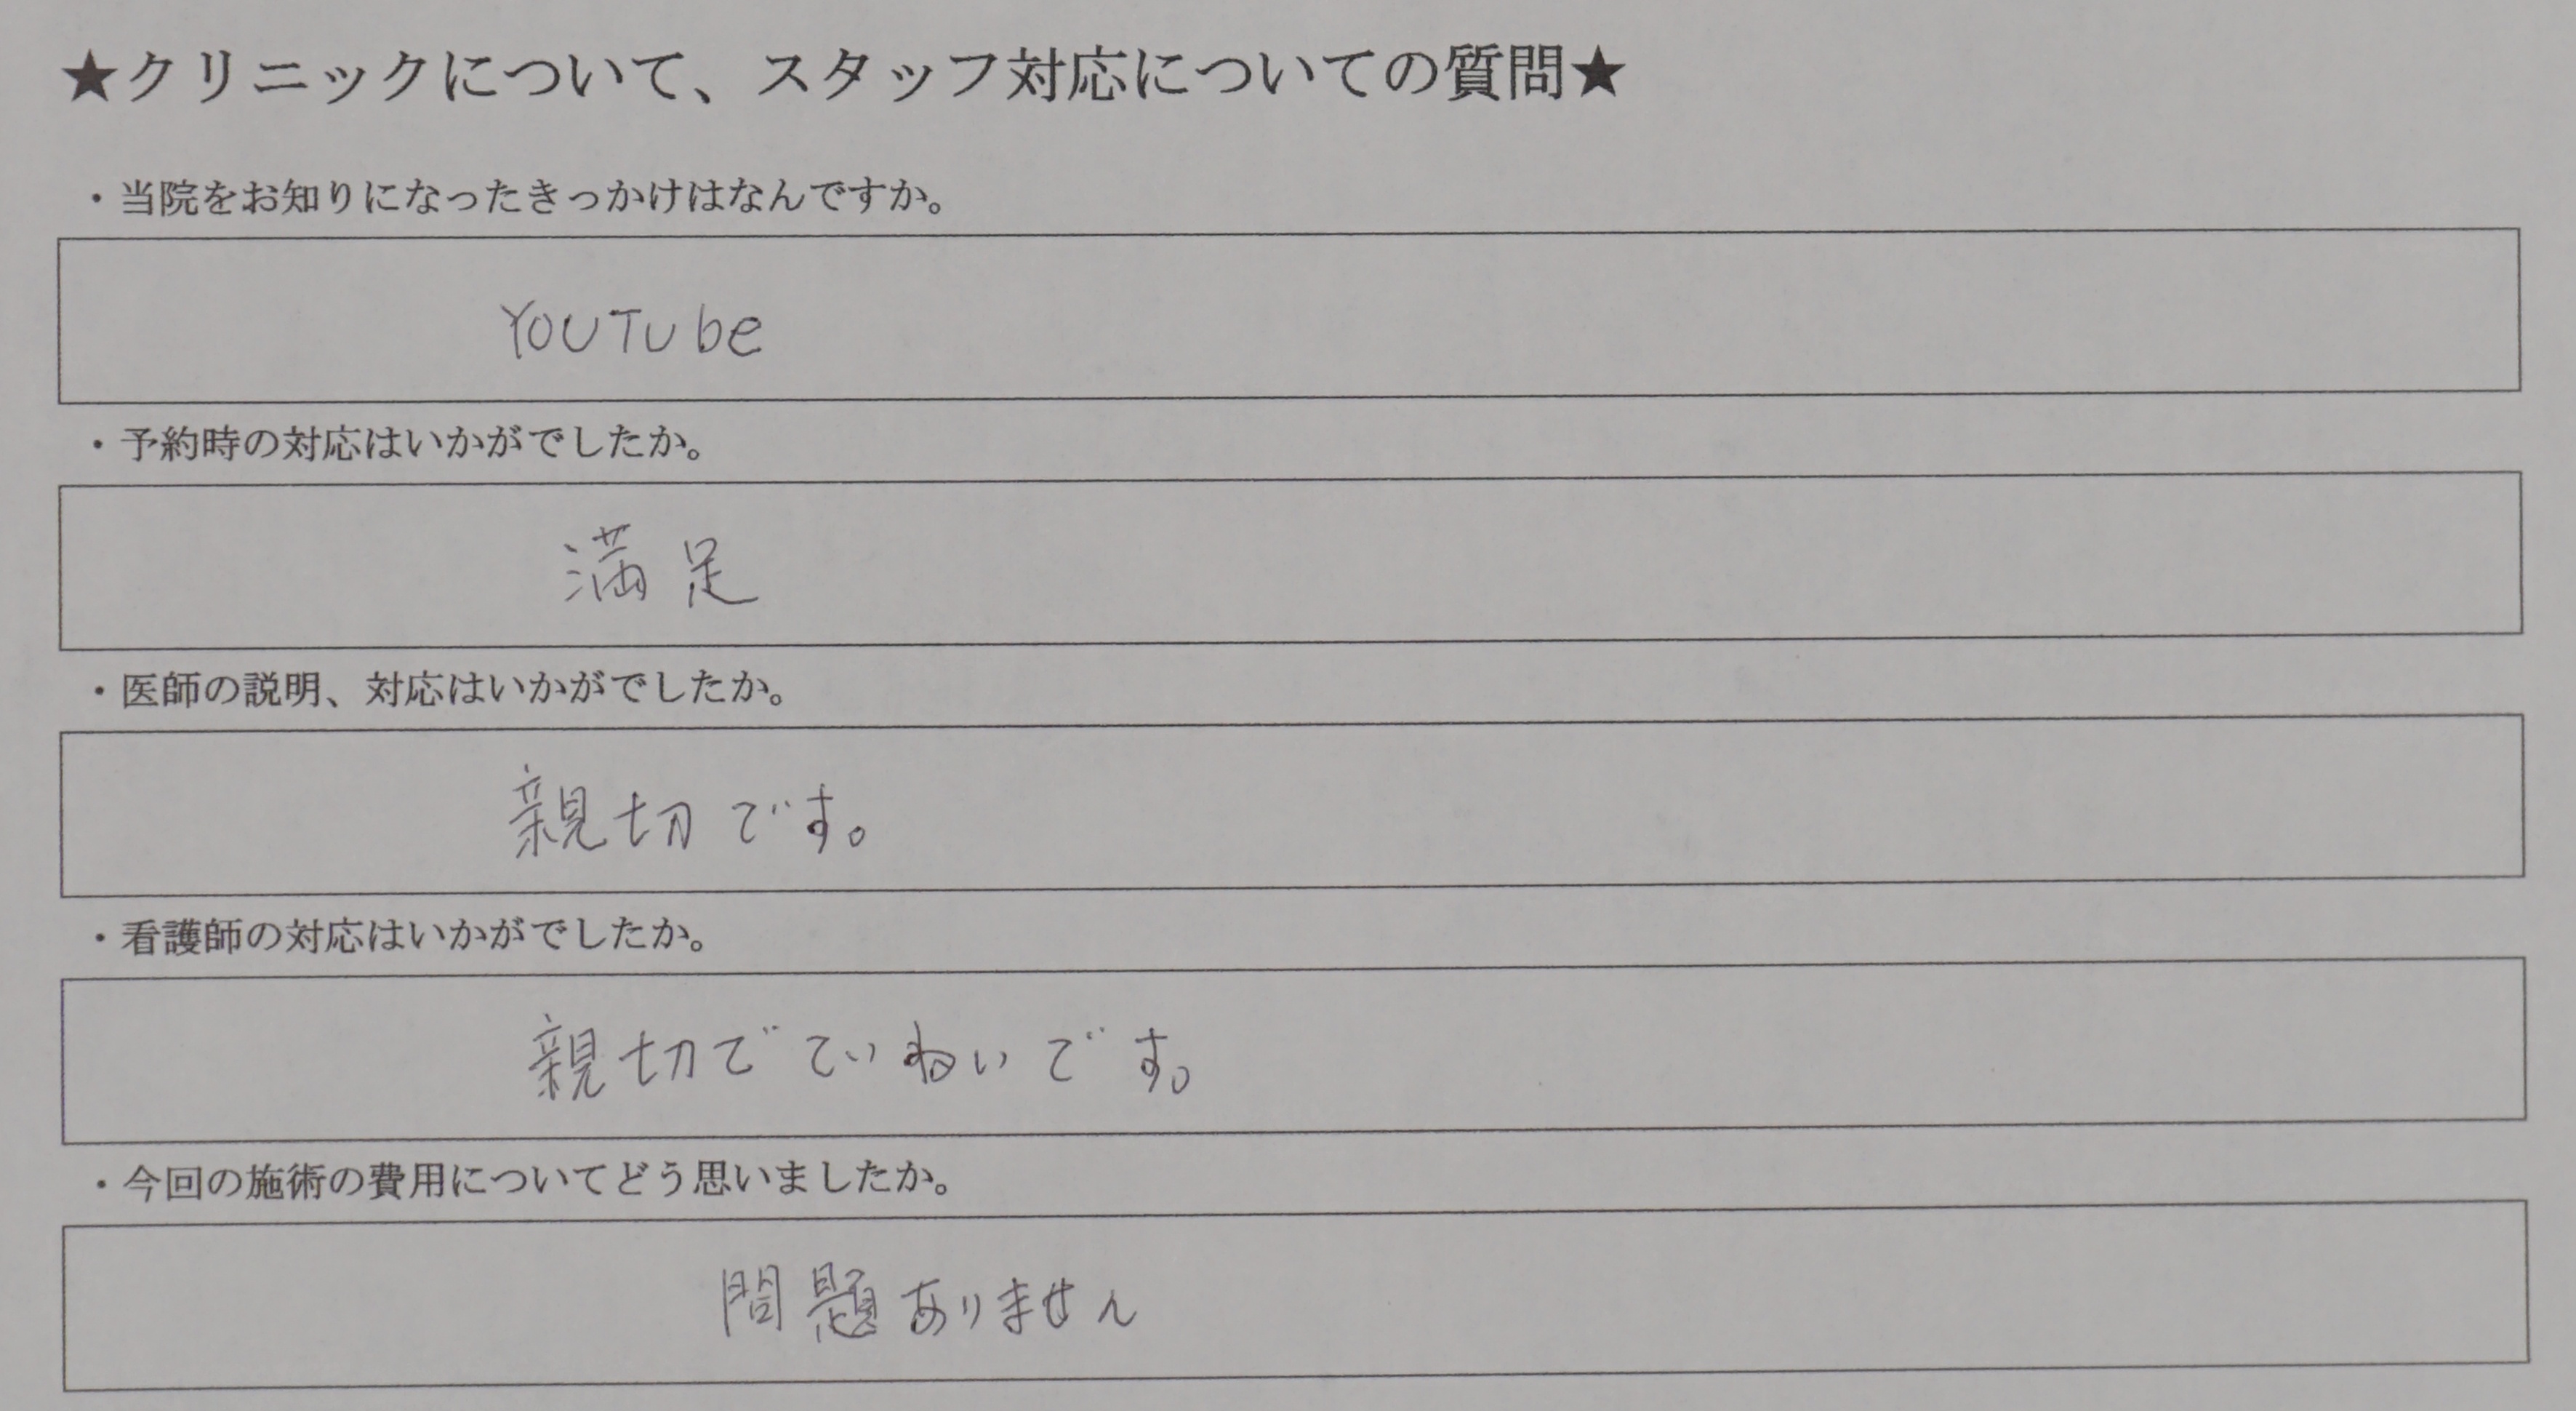 ★クリニックについて、スタッフ対応についての質問★
・当院をお知りになったきっかけはなんですか。
YouTube
・予約時の対応はいかがでしたか。
満足
・医師の説明、対応はいかがでしたか。
親切です。
・看護師の対応はいかがでしたか。
親切でていねいです。
・今回の施術の費用についてどう思いましたか。
問題ありません